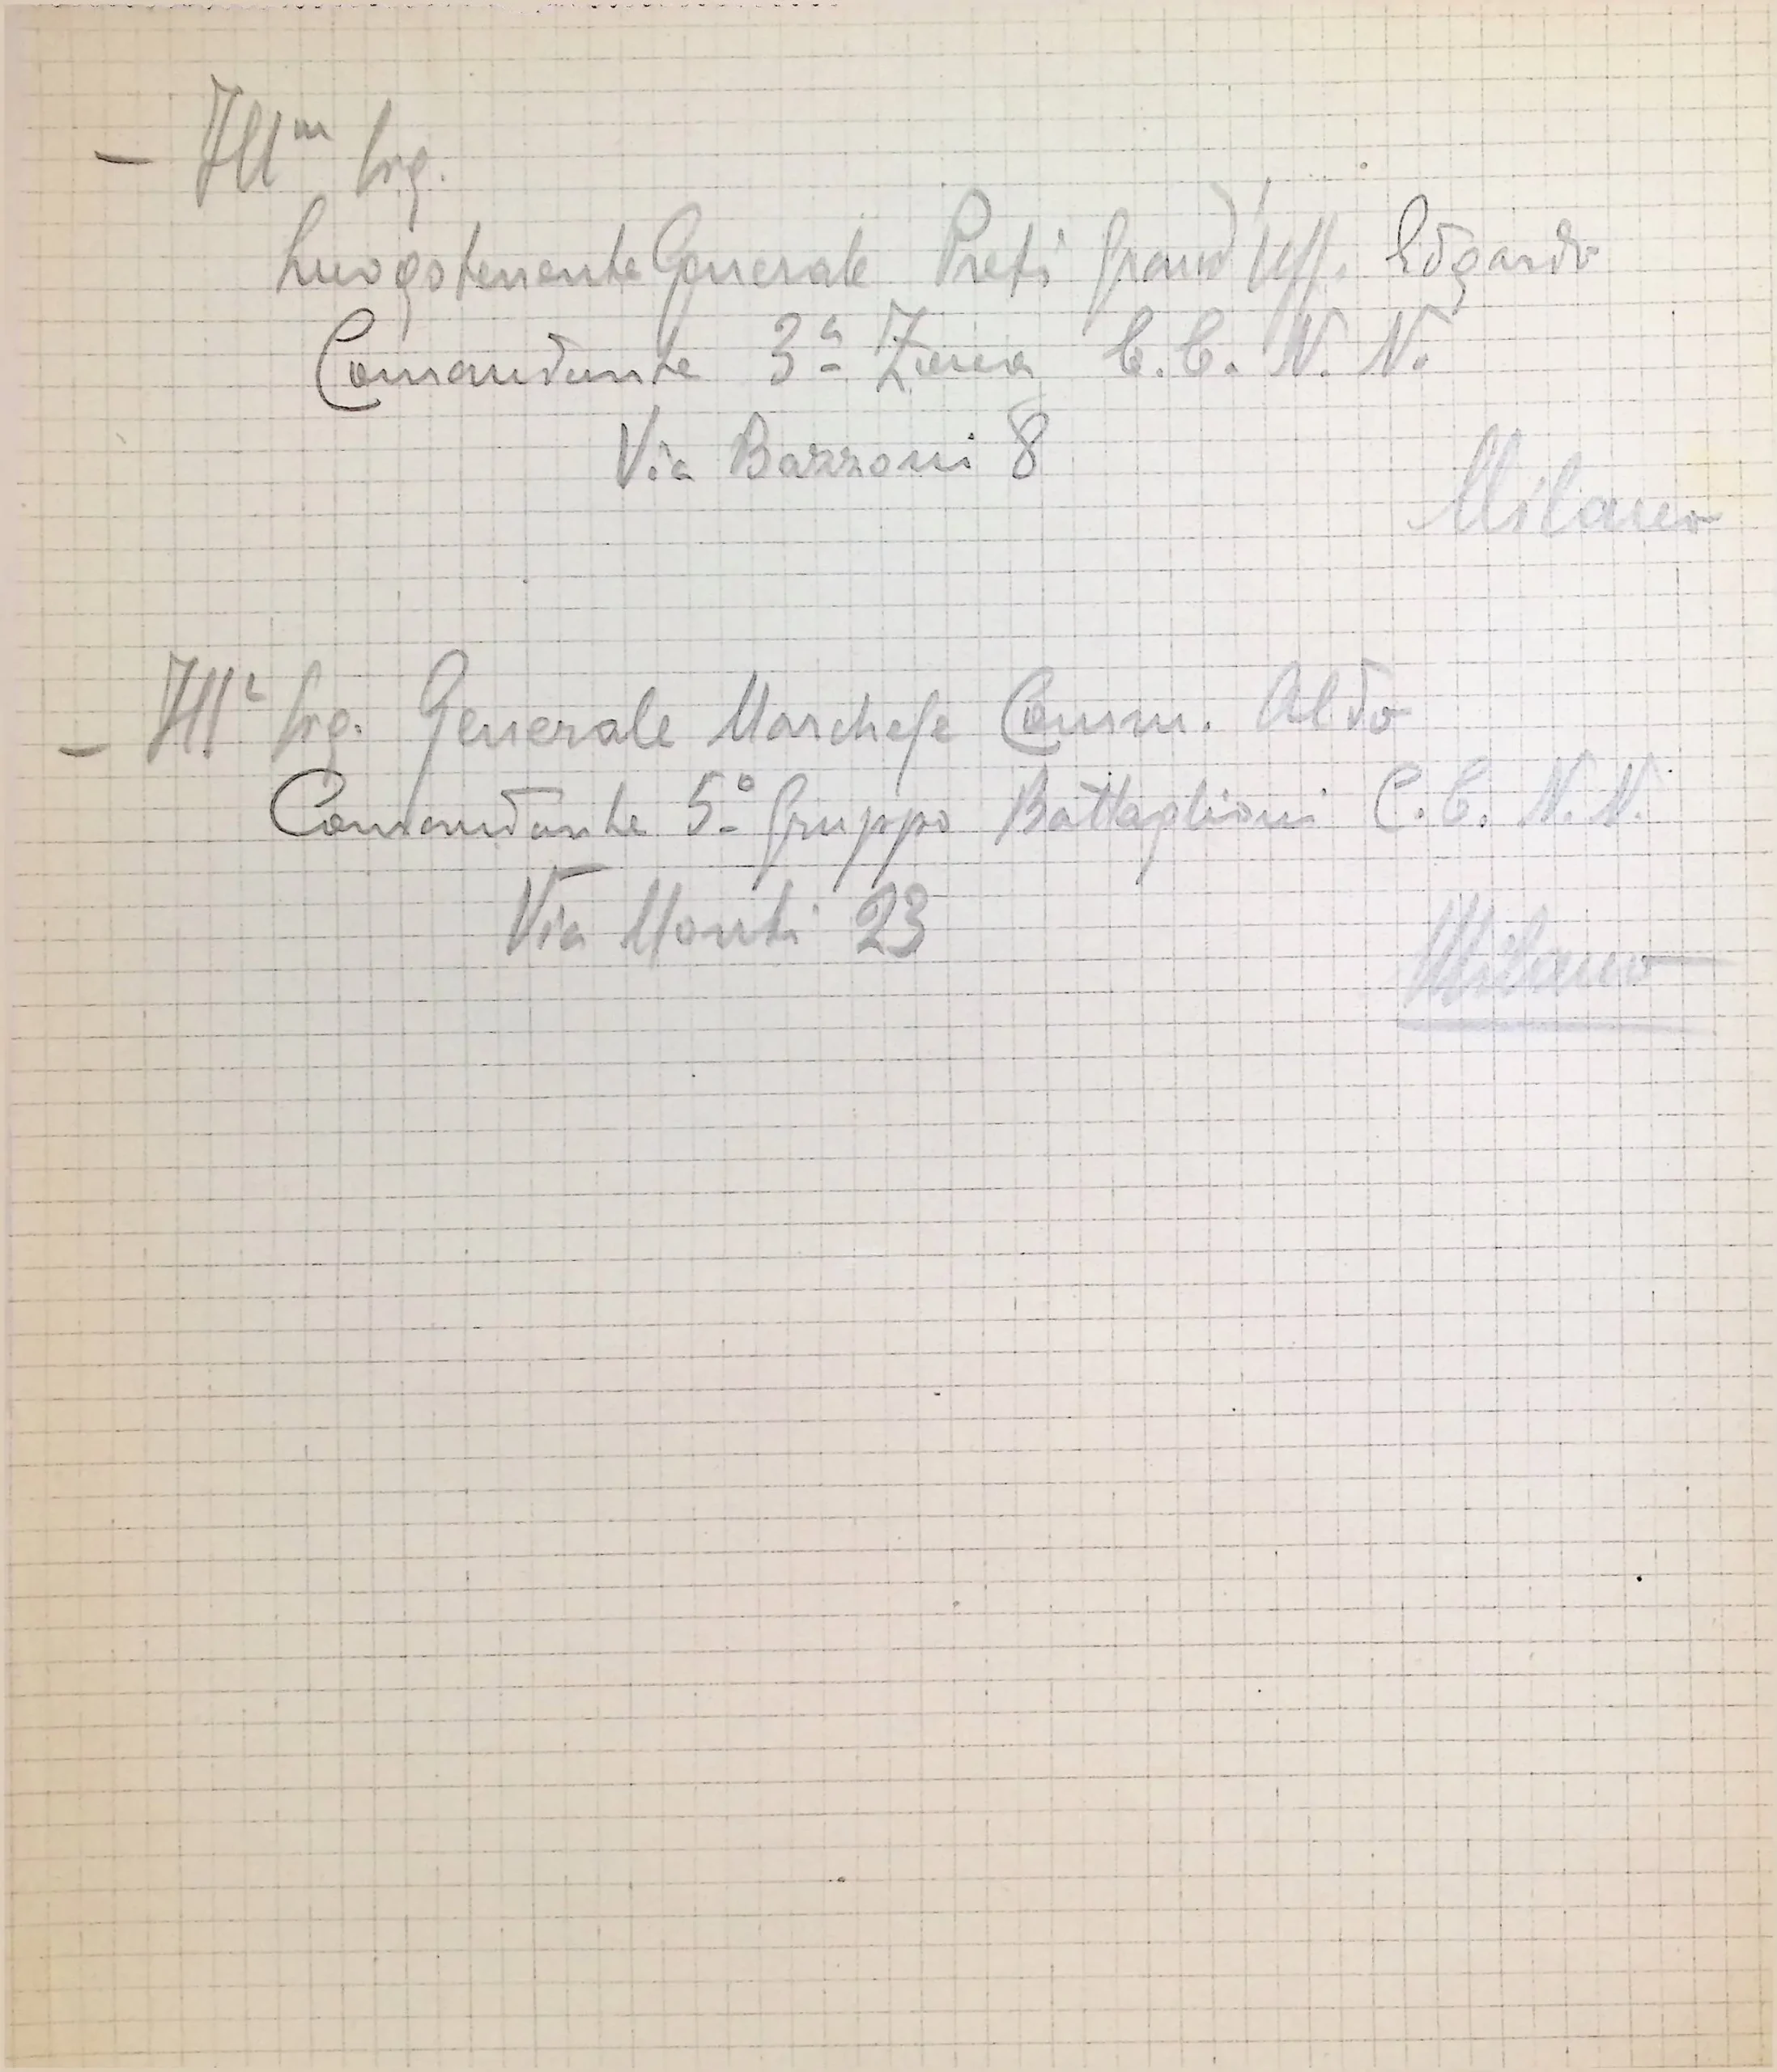 - Ill^m Sig.
Luogotenente Generale Preti Grand'Uff. Edgardo
Comandante 3ª Zona C.C. N.N.
Via Bazzoni 8
Milano
- Ill^e Sig. Generale Marchese Comm. Aldo
Comandante 5º Gruppo Battaglioni C.C. N.N.
Via Monti 23
Milano